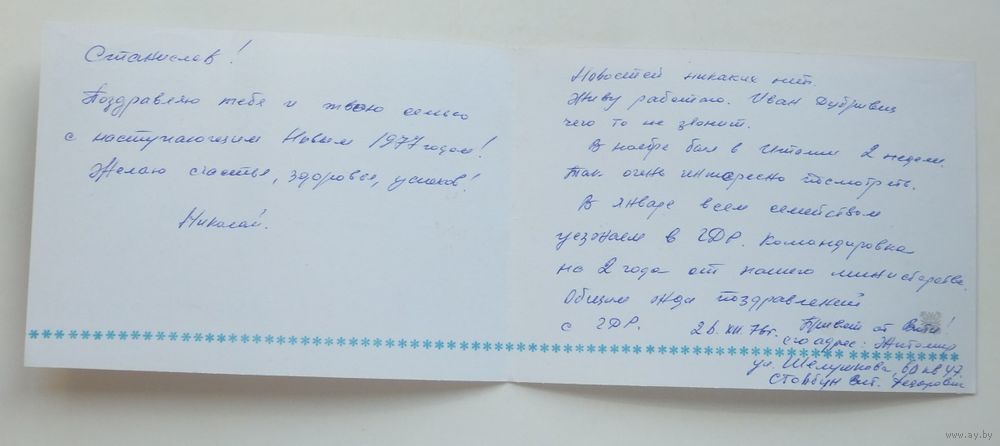 Станислав!
Поздравляю тебя и твою семью
с наступающим Новым 1977 годом!
Желаю счастья, здоровья, успехов!
Николай.
Новостей никаких нет.
Живу работаю. Иван
чего то не звонит.
В ноябре был в Италии 2 недели.
Так очень интересно посмотреть.
В январе всем семейством
уезжаем в ГДР. Командировка
на 2 года от нашего министерства.
Общим жди поздравлений
с ГДР. 26. XII 76г.
Привет от Вити!
его адрес: Житомир
ул. Шелушкова, кв 47.
Вит. Федорович
www.ay.by